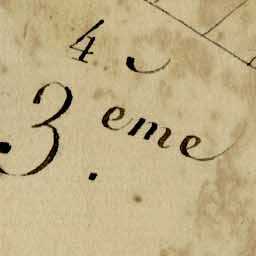 4
3.eme